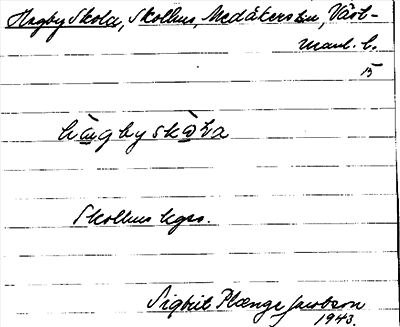 Hagby Skola, Skolhus, Medåkers sn, Väst-
manl. l.
15
hàgbyskòla
Skolhus kgr.
Sigbrit Plænge Jacobson
1943.